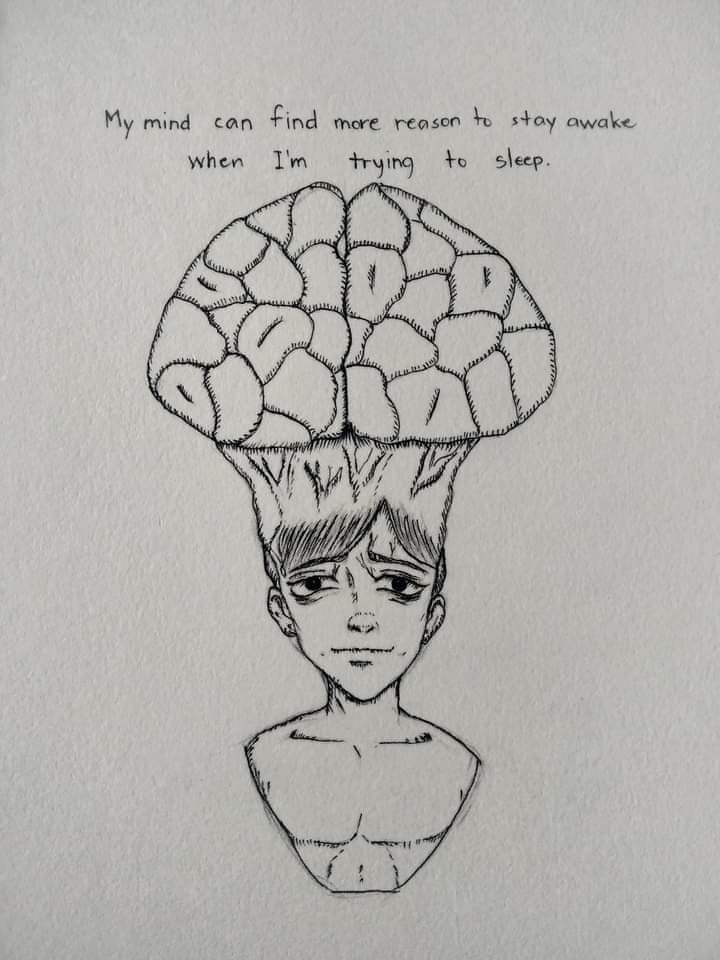 My mind can find more reason to stay awake
when I'm trying to sleep.